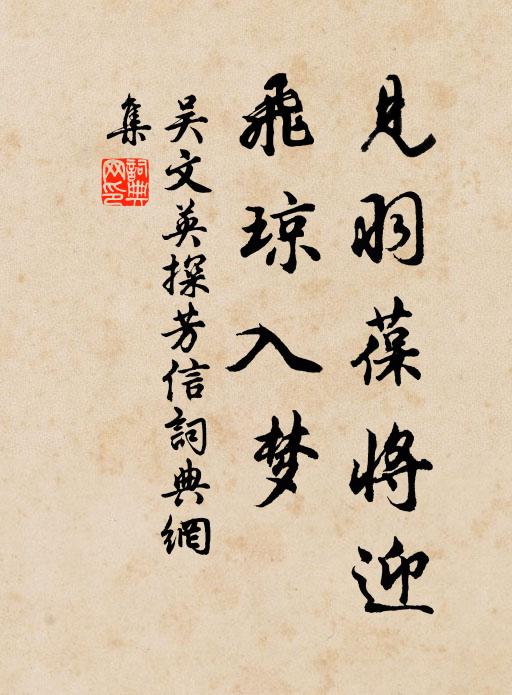 见羽葆将迎
飛琼入梦
吴文英探芳信詞典網
集
詞典
网印